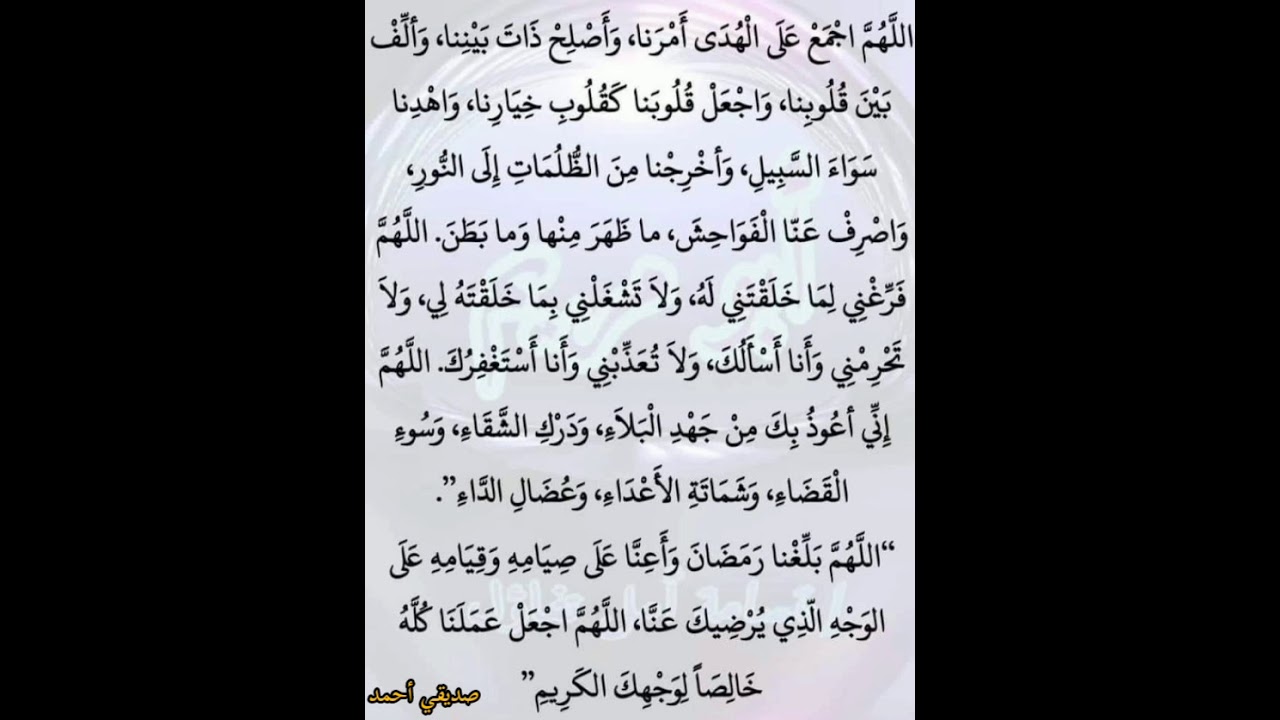 اللَّهُمَّ اجْمَعْ عَلَى الْهُدَى أَمْرَنا، وَأَصْلِحْ ذَاتَ بَيْنِنا، وَأَلِّفْ
بَيْنَ قُلُوبِنا، وَاجْعَلْ قُلُوبَنا كَقُلُوبِ خِيَارِنا، وَاهْدِنا
سَوَاءَ السَّبِيلِ، وَأخْرِجْنا مِنَ الظُّلُمَاتِ إِلَى النُّورِ،
وَاصْرِفْ عَنّا الْفَوَاحِشَ، ما ظَهَرَ مِنْها وَما بَطَنَ. اللَّهُمَّ
فَرِّغْنِي لِمَا خَلَقْتَنِي لَهُ، وَلاَ تَشْغَلْنِي بِمَا خَلَقْتَهُ لِي، وَلاَ
تَحْرِمْنِي وَأَنا أَسْأَلُكَ، وَلاَ تُعَذِّبْنِي وَأَنا أَسْتَغْفِرُكَ. اللَّهُمَّ
إِنِّي أعُوذُ بِكَ مِنْ جَهْدِ الْبَلاَءِ، وَدَرْكِ الشَّقَاءِ، وَسُوءِ
الْقَضَاءِ، وَشَمَاتَةِ الأَعْدَاءِ، وَعُضَالِ الدَّاءِ”.
“اللَّهُمَّ بَلِّغْنا رَمَضَانَ وَأَعِنَّا عَلَى صِيَامِهِ وَقِيَامِهِ عَلَى
الوَجْهِ الّذِي يُرْضِيكَ عَنَّا، اللَّهُمَّ اجْعَلْ عَمَلَنَا كُلَّهُ
خَالِصَاً لِوَجْهِكَ الكَرِيمِ”
صديقي أحمد